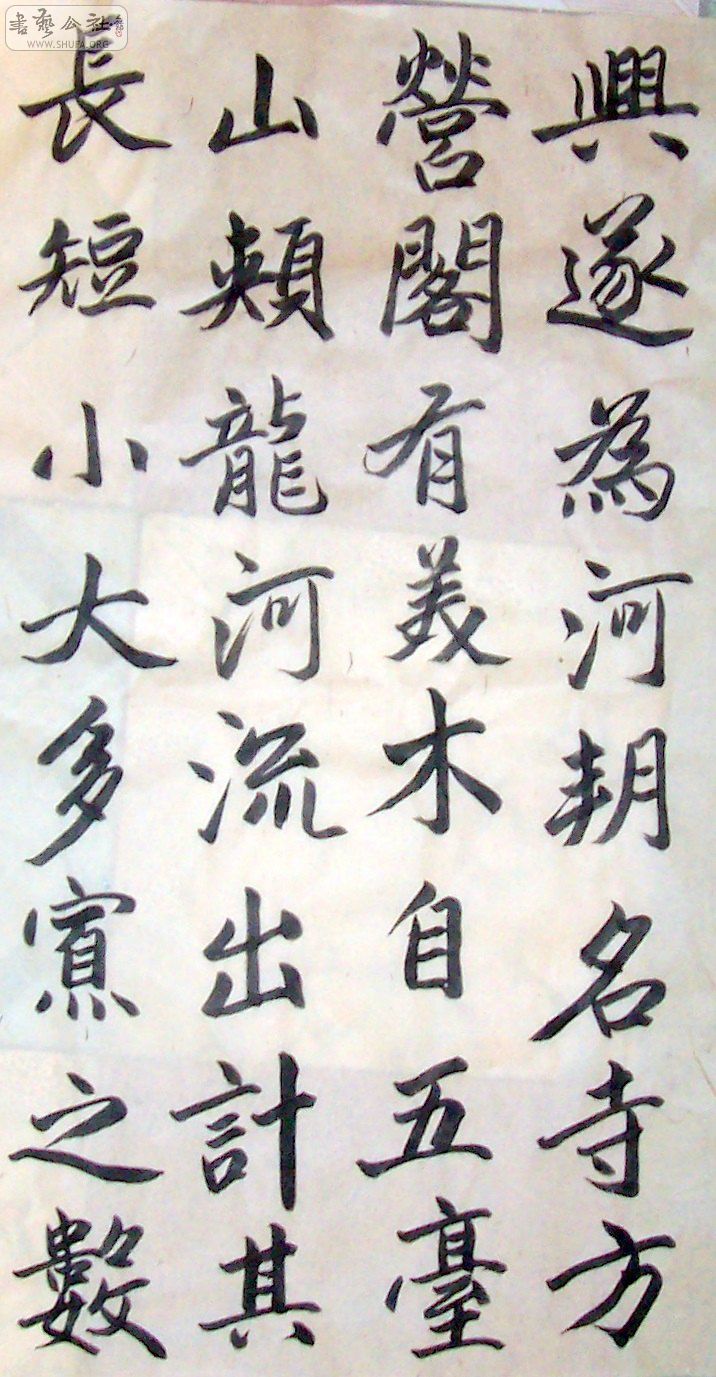 興遂為河朔名寺方
營閣有美木自五臺
山頰龍河流出計其
長短小大多寡之數
書藝公社
WWW.SHUFA.ORG